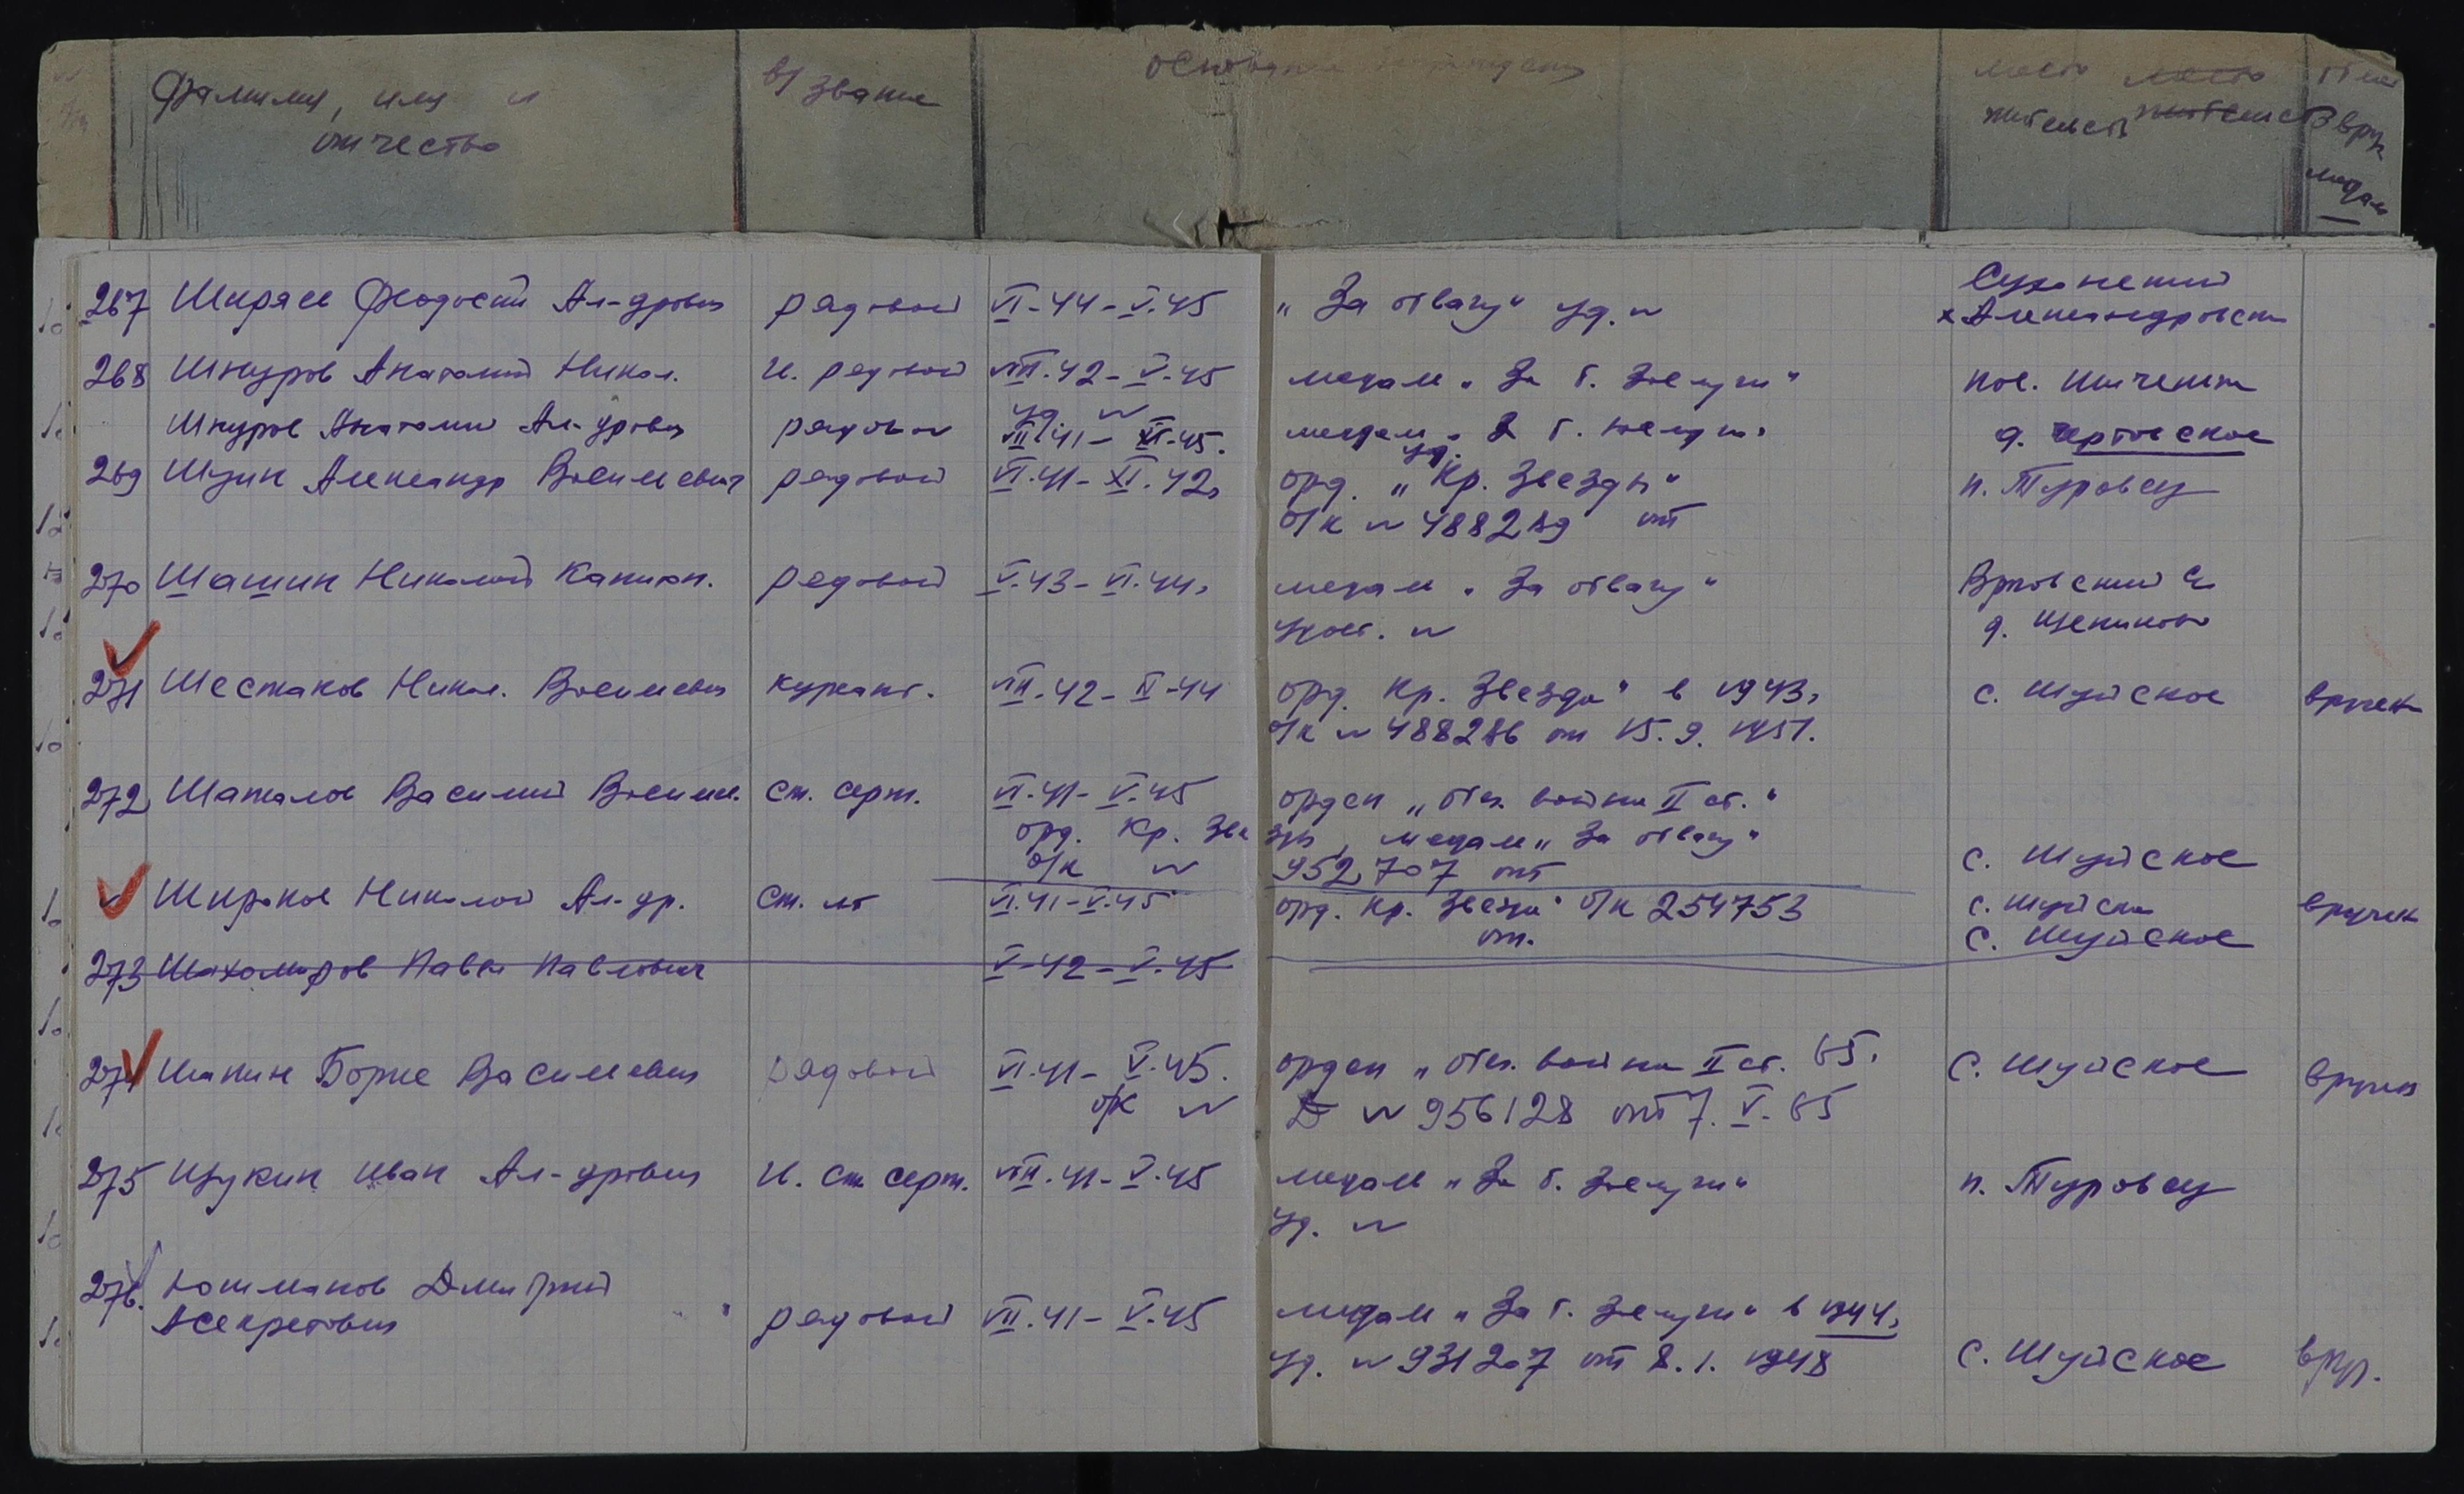 Фамилия, имя и
отчество
в/звание
место
жительств
267 Ширяев Феодосий Ал-дрович рядовой VI-44-V.45 "За отвагу" уд. №
Александровск
268 Шкуров Анатолий Никол. рядовой VIII.42-V.45 медаль "За б. заслуги"
уд. №
Шкуров Анатолий Ал-дрович рядовой VII.41-XI-45. медаль "За б. заслуги" д.
269 Шучин Александр Васильевич рядовой VI.41-XI.42 орд. "Кр. Звезды" п. Туровец
о/к № от
270 Шашин Николай рядовой V.43-VI.44 медаль "За отвагу"
удост. № д. Щекотово
271 Шестаков Никол. Васильевич курсант. VIII-42-II-44 орд. Кр. Звезда" в 1943, с. Шуйское вручен
о/к № 488286 от 15.9.1951.
272 Шаталов Василий Васильев. ст. серж. VI.41-V.45 орден "Отеч. войны II ст."
орд. Кр. Зве зды, медаль "За отвагу"
о/к № 952707 от с. Шуйское
Широков Николай Ал-др. ст. лт VI.41-V.45 орд. Кр. Звезда" о/к 254753 с. Шуйское вручен
от. с. Шуйское
273 Павел Павлович V-42-V.45
274 Шапин Борис Васильевич рядовой VI.41-V.45. орден "Отеч. войны II ст. 85. с. Шуйское вручен
о/к № № 956128 от 7.V.85
275 Щукин Иван Ал-дрович И. ст. серж. VIII.41-V.45 медаль "За б. заслуги" п. Туровец
уд. №
276. Юшманов Дмитрий
Асекретович рядовой VII.41-V.45 медаль "За б. заслуги" в 1944,
уд. № 931207 от 8.1.1948 с. Шуйское вруч.